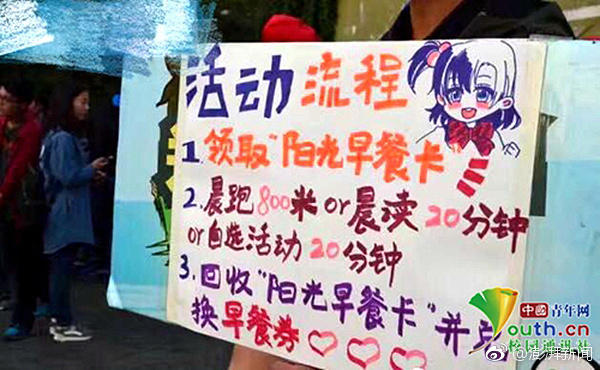 活动 流程
1. 领取"阳光早餐卡
2. 晨跑800米or晨读20分钟
or自选活动20分钟
3. 回收"阳光早餐卡"并兑
换早餐券
中国青年网
Youth.cn
校园通讯社
@澎湃新闻